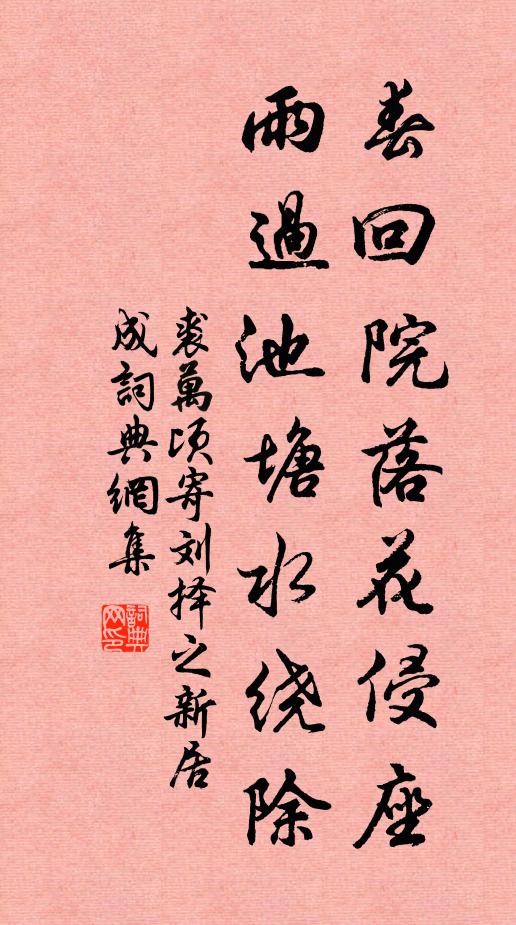 春回院落花侵座
雨過池塘水绕除
裘萬頃寄刘择之新居
成詞典網集
詞典网印